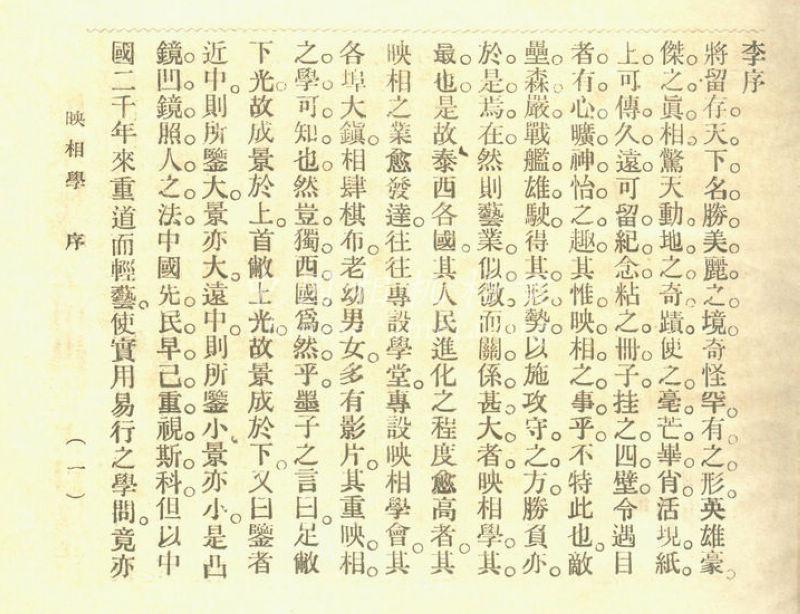 李序
將留存天下名勝美麗之境奇怪罕有之形英雄豪
傑之眞相驚天動地之奇蹟使之毫芒畢肖活現紙
上可傳久遠可留紀念粘之冊子挂之四壁令遇目
者有心曠神怡之趣其惟映相之事乎不特此也敵
壘森嚴戰艦雄駛得其形勢以施攻守之方勝負亦
於是焉在然則藝業似微而關係甚大者映相學其
最也是故泰西各國其人民進化之程度愈高者其
映相之業愈發達往往專設學堂專設映相學會其
各埠大鎭相肆棋布老幼男女多有影片其重映相
之學可知也然豈獨西國爲然乎墨子之言曰足敝
下光故成景於上首敝上光故景成於下又曰鑒者
近中則所鑒大景亦大遠中則所鑒小景亦小是凸
鏡凹鏡照人之法中國先民早已重視斯科但以中
國二千年來重道而輕藝使實用易行之學問竟亦
映相學 序 (一)